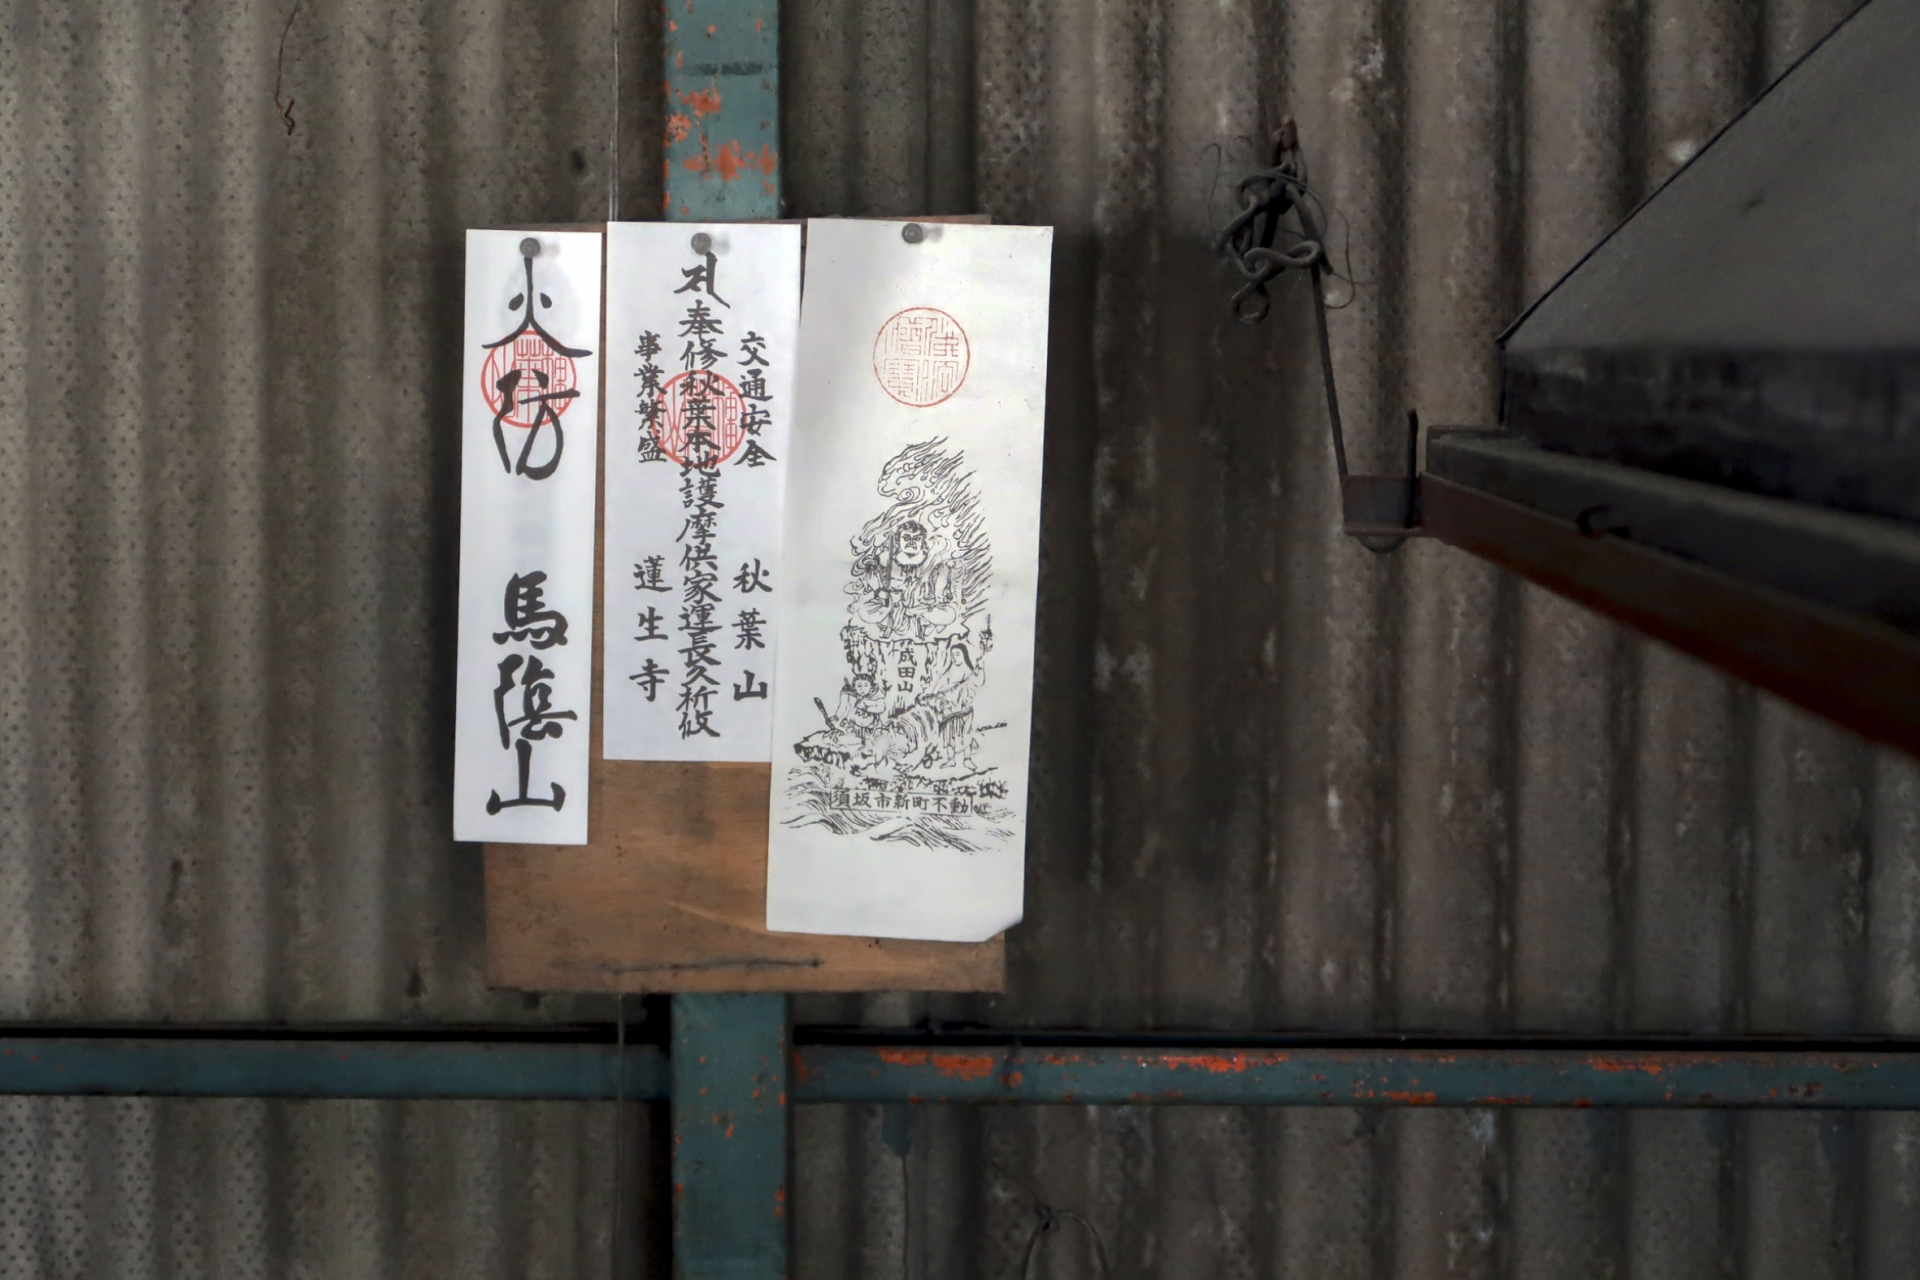 火防 馬陰山
交通安全 秋葉山
奉修秋葉本地護摩供家運長久祈攸
事業繁盛 蓮生寺
成田山
須坂市新町不動